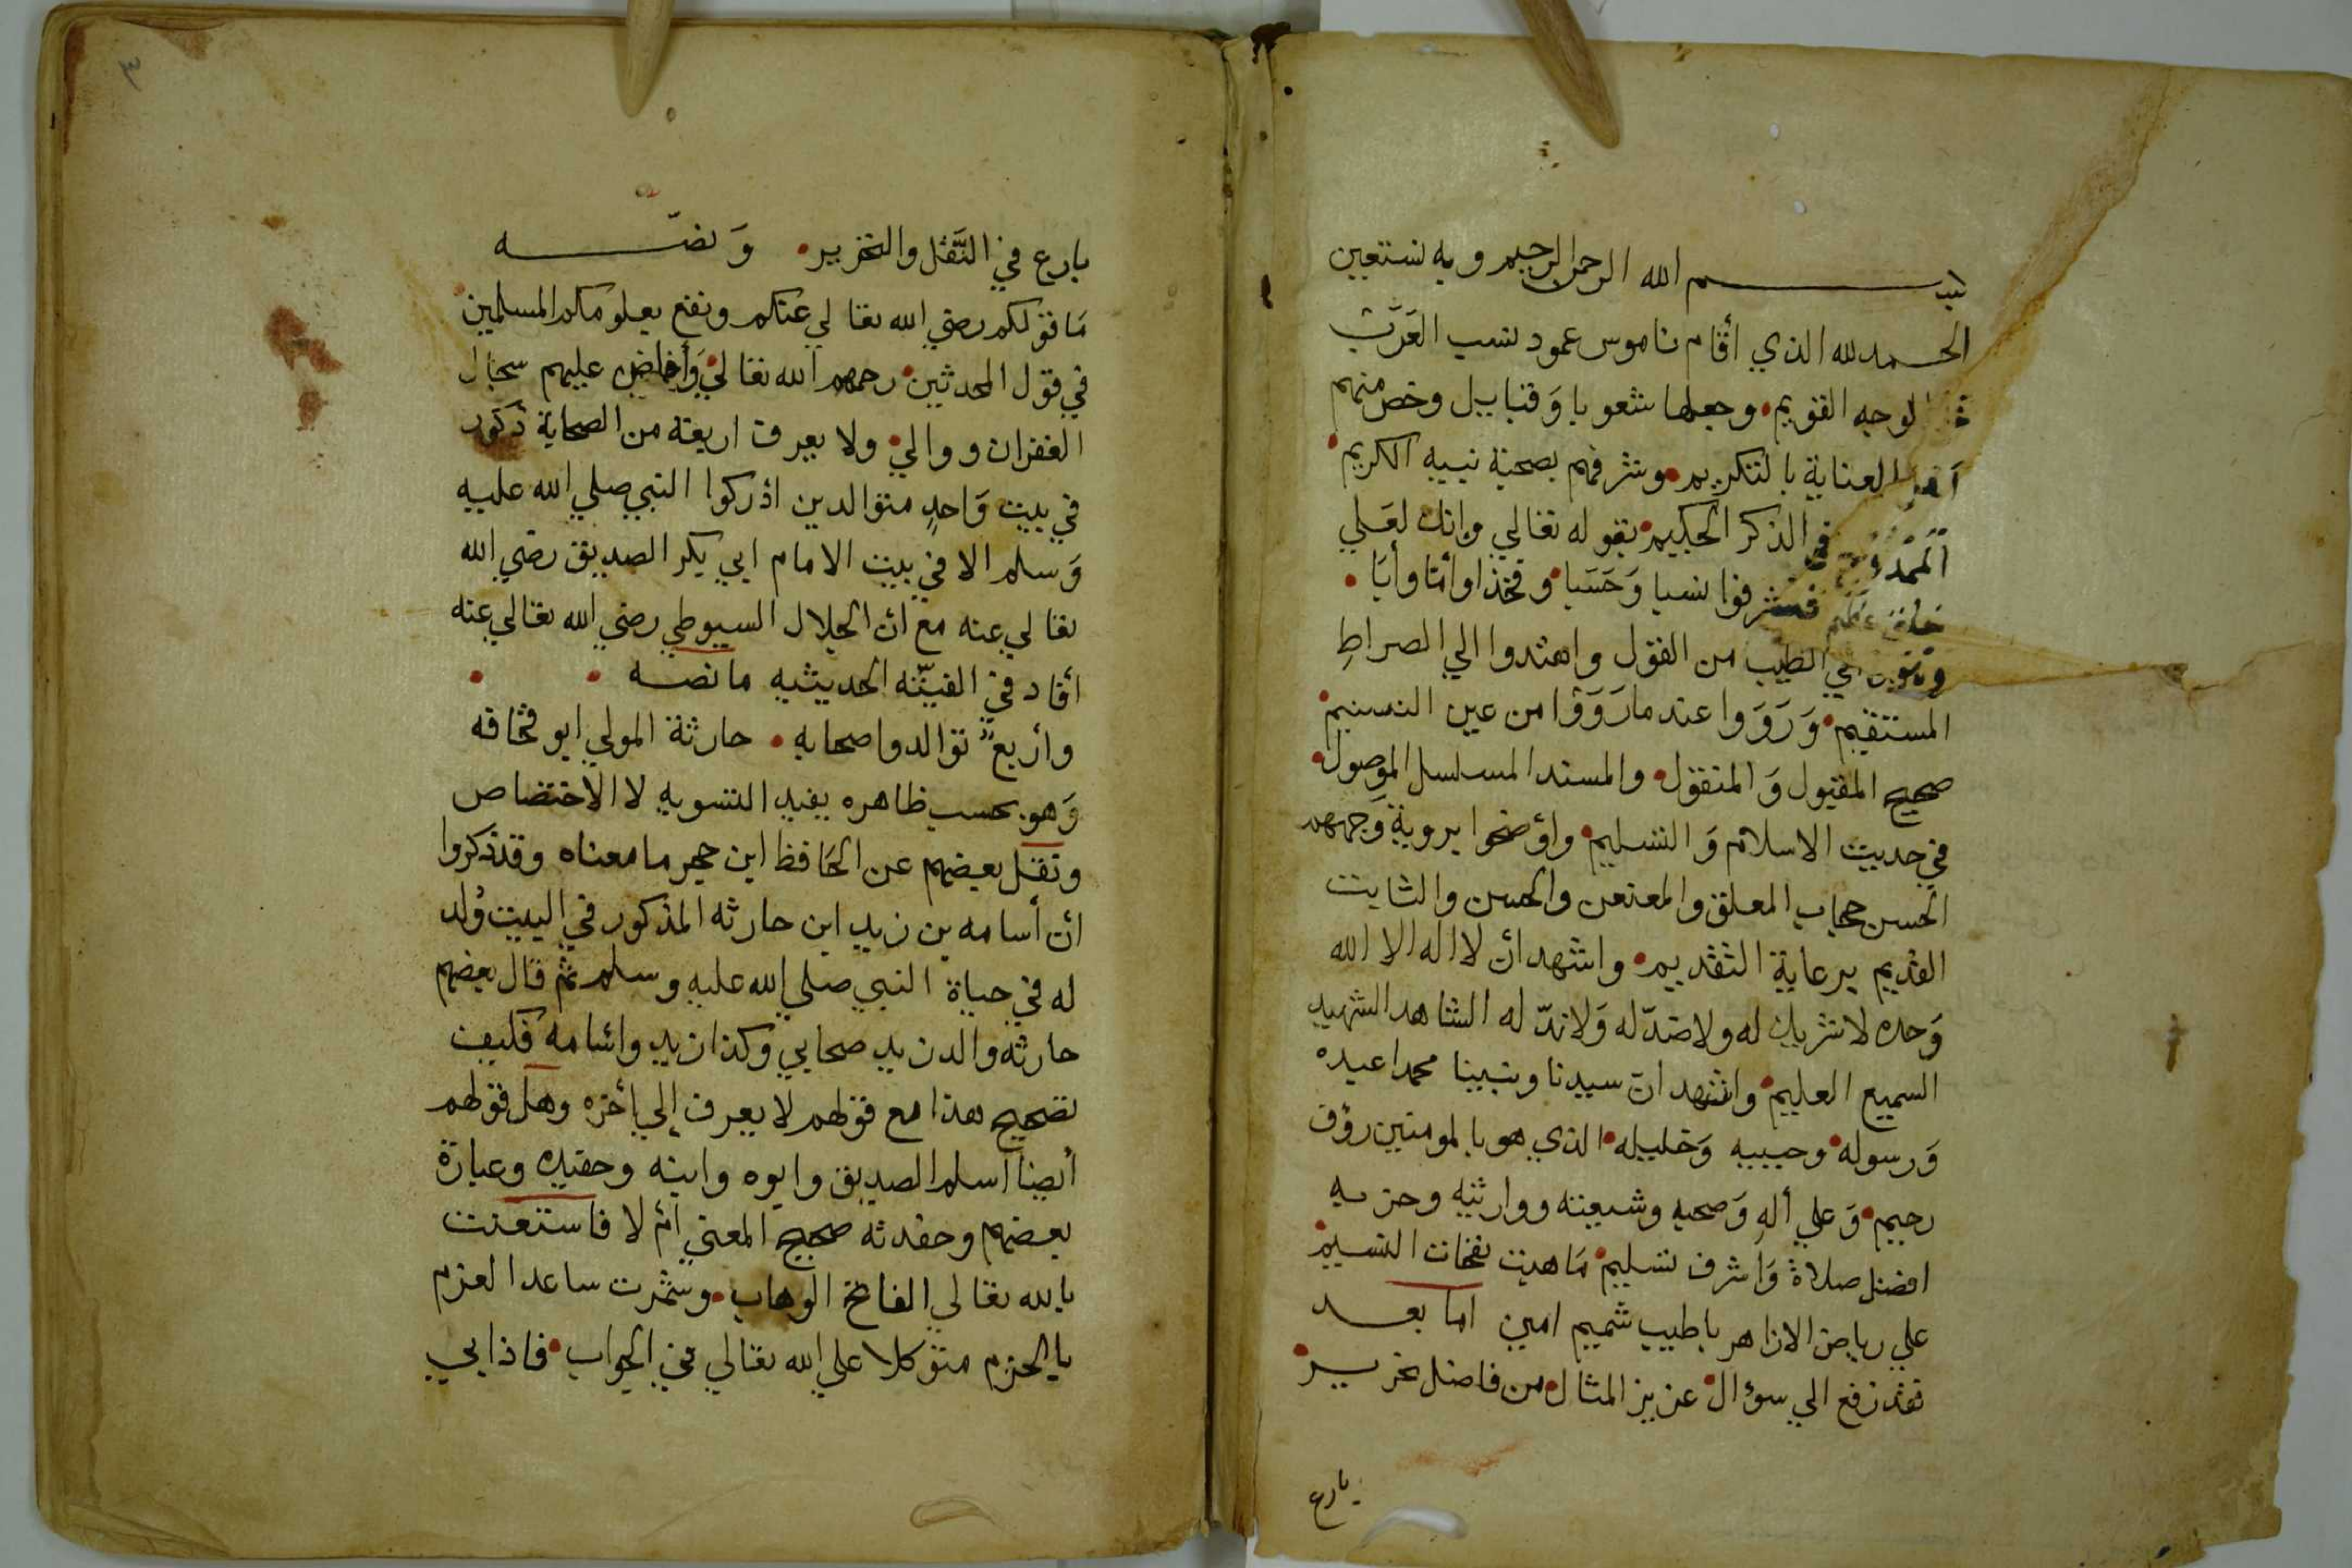 بسم الله الرحمن الرحيم وبه نستعين
الحمد لله الذي أقام ناموس عمود نسب العرب
لوجه القويم وجعلها شعوبا وقبايل وخص منهم
العناية بالتكريم وشرفهم بصحبة نبيه الكريم
في الذكر الحكيم بقوله تعالي وانك لعلي
فشرفوا نسبا وحسبا وفخذا وأمّا وأبا
الطيب من القول واهتدوا الي الصراط
المستقيم وَرَوَوا عند ما رَوَوْا من عين التسنيم
صحيح المقبول وَالمنقول والمسند المسلسل الموصول
في حديث الاسلام وَالتسليم وأوضحوا بروية وَجههم
الحسن حجاب المعلق والمعنعن والحسن والثابت
القديم برعاية التقديم واشهد أن لا اله الا الله
وَحده لا شريك له ولا ضدّ له وَلا ندّ له الشاهد الشهيد
السميع العليم واشهد ان سيدنا ونبينا محمدا عبده
وَرسوله وحبيبه وَخليله الذي هو بالمومنين رؤف
رحيم وَعلي ألهِ وَصحبه وشيعته ووارثيه وحزبه
افضل صلاة وَاشرف تسليم مَا هبت نفحات النسيم
علي رياض الازاهر باطيب شميم امين اما بعد
فقد رفع الي سؤال عزيز المثال من فاضل تحرير
بارع
٣
بارع في النَّقل والتحرير وَنصّه
مَا قولكم رضي الله تعالي عنكم ونفع بعلومكم المسلمين
في قول المحدثين رحمهم الله تعالي وَأفاض عليهم سجال
الغفران ووالي ولا يعرف اربعة من الصحابة ذكور
في بيت وَاحدٍ متوالدين ادركوا النبي صلي الله عليه
وَسلم الا في بيت الامام ابي بكر الصديق رضي الله
تعالي عنه مع أن الجلال السيوطي رضي الله تعالي عنه
أفاد في الفيّته الحديثيه ما نصه
وأربعٌ توالدوا صحابه حارثة المولي ابو قحافه
وَهو بحسب ظاهره يفيد التسويه لا الاختصاص
ونقل بعضهم عن الحَافظ ابن حجر ما معناه وقد ذكروا
أن أسامه بن زيد ابن حارثه المذكور في البيت وُلد
له في حياة النبي صلي الله عليه وسلم ثم قال بعضهم
حارثه والد زيد صحابي وكذا زيد وأسامه فكيف
تصحيح هذا مع قولهم لا يعرف إلي أخره وهل قولهم
أيضا اسلم الصديق وابوه وابنه وحفيده وعبارة
بعضهم وحفدته صحيح المعني أم لا فاستعنت
بالله تعالي الفاتح الوهاب وشمرت ساعد العزم
بالحزم متوكلا علي الله تعالي في الجواب فاذا بي